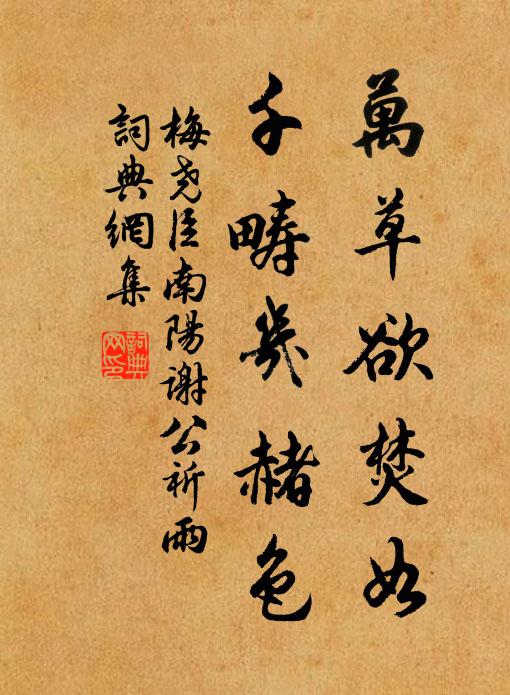 萬草欲焚如
千疇幾赭色
梅堯臣南陽謝公祈雨
詞典網集
詞典網印